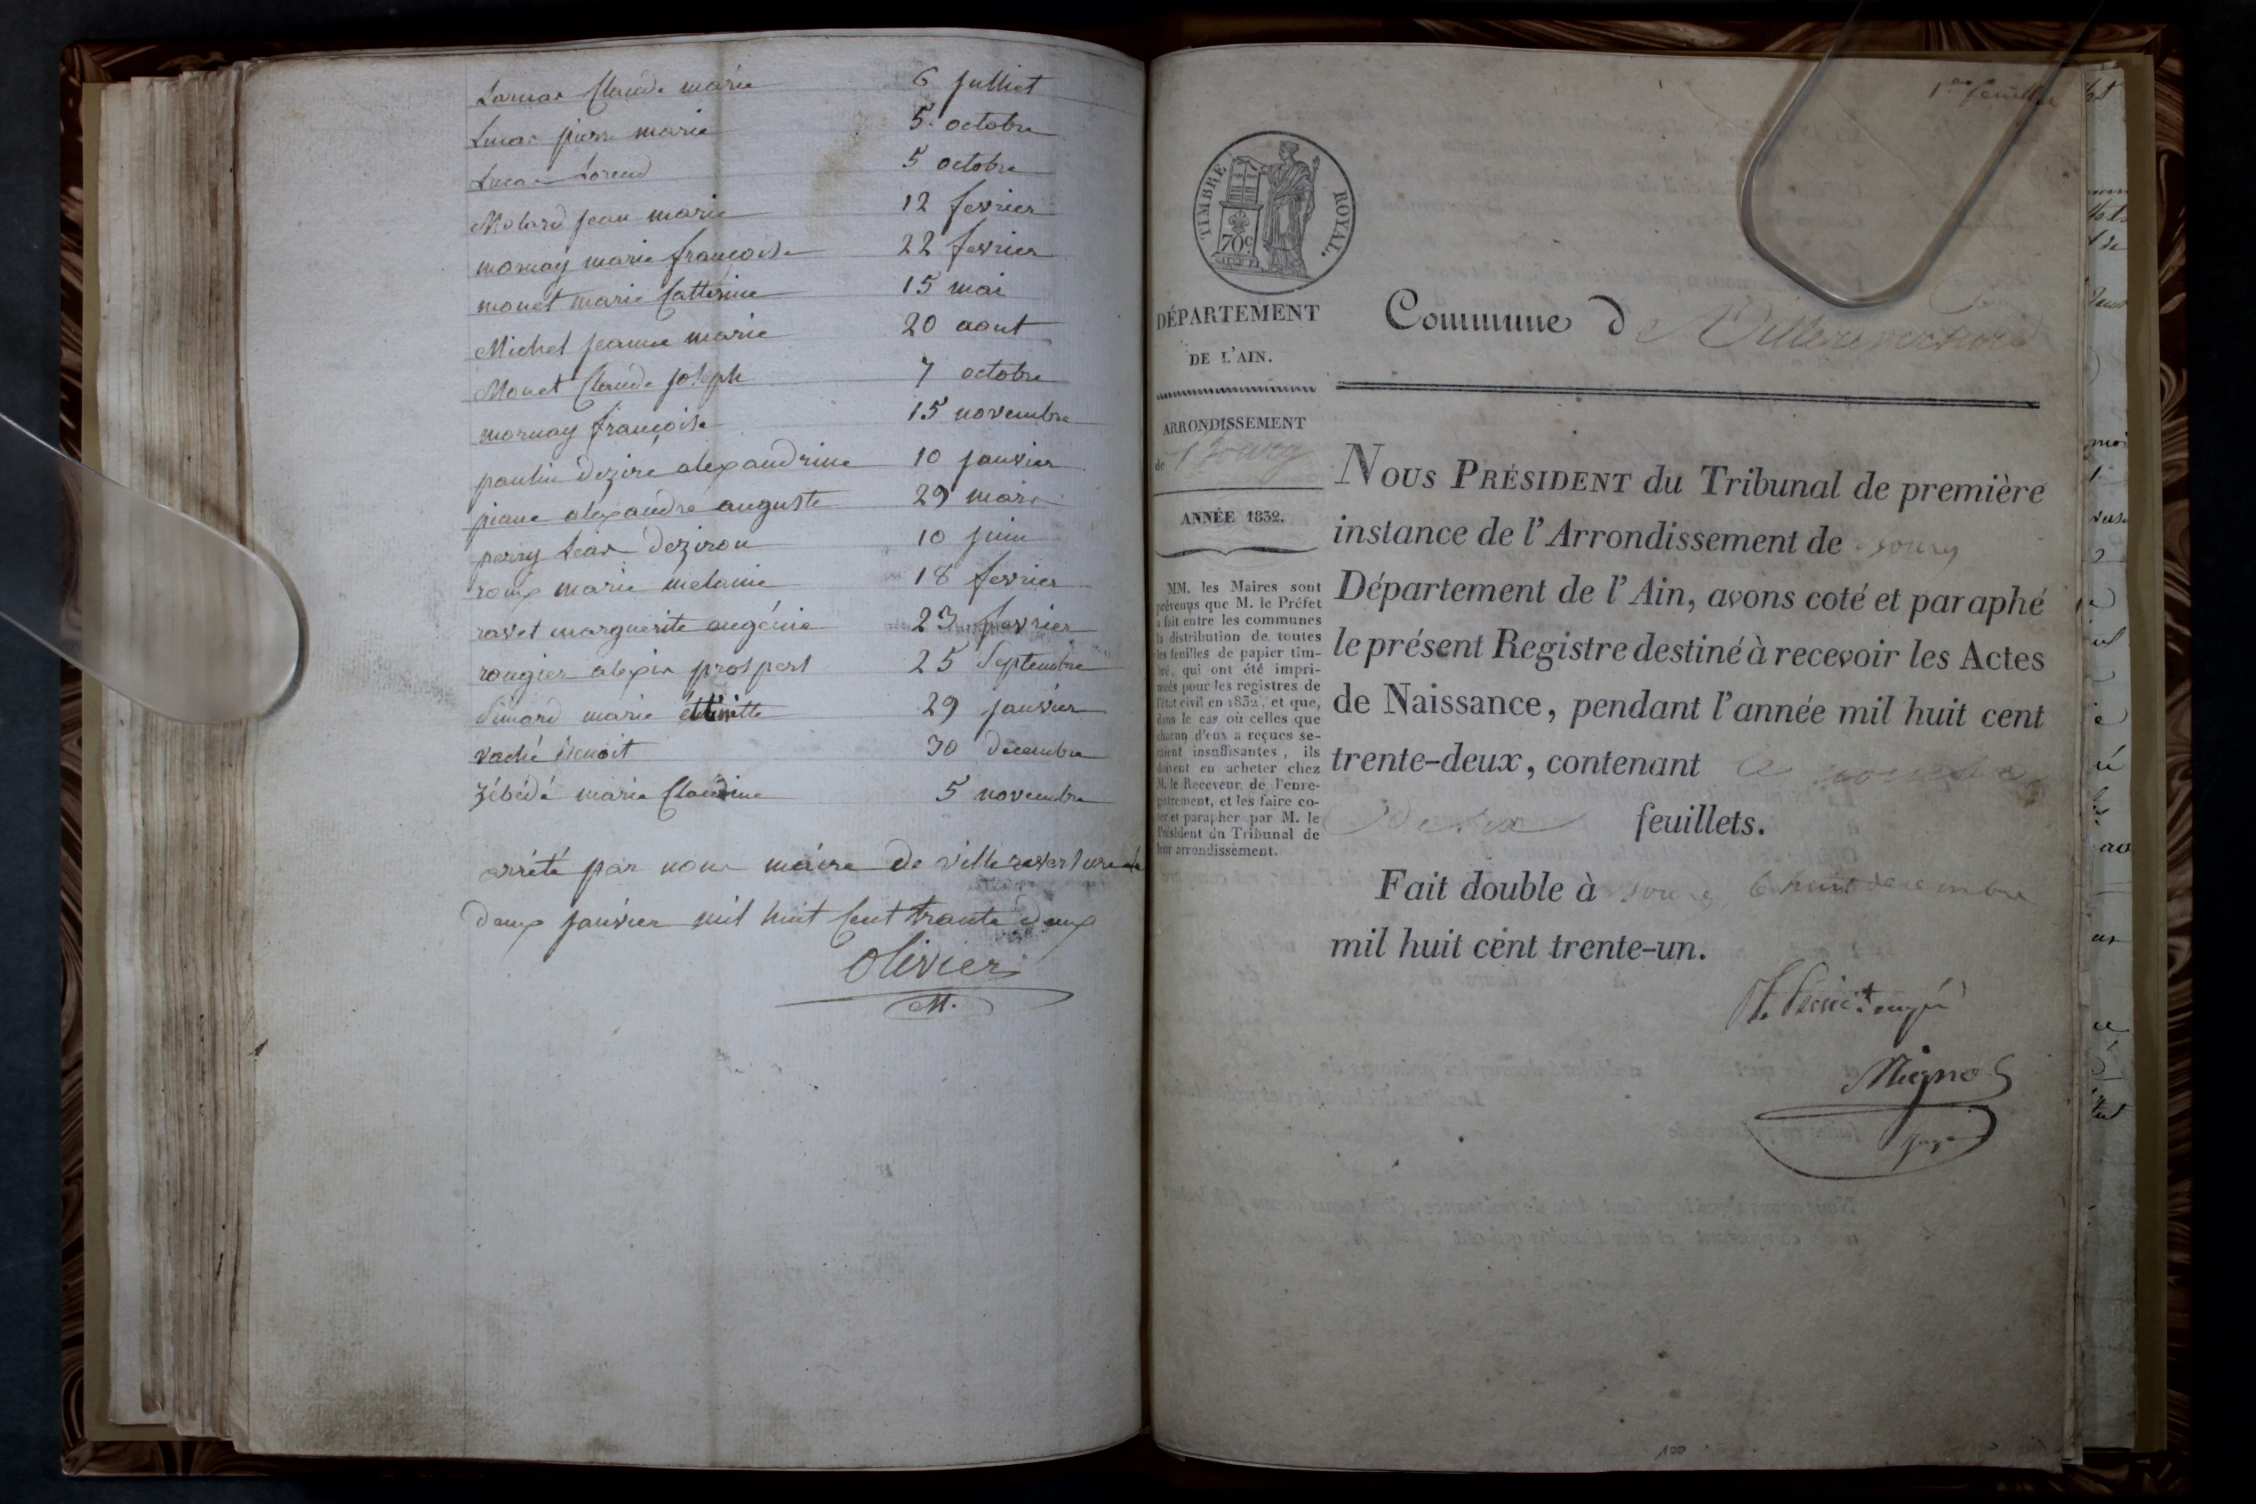 Lucas Claude marie 6 julliet
Lucas pierre marie 5 octobre
Lucas Lorend 5 octobre
Molard jean marie 12 fevrier
mornay marie françoise 22 fevrier
monet marie Catterine 15 mai
Michel jeanne marie 20 aout
Monet Claude joseph 7 octobre
mornay françoise 15 novembre
paulin dezire alexandrine 10 janvier
piane alexandre auguste 29 mars
perry Léon deziron 10 juin
roux marie melanie 18 fevrier
ravet marguerite eugénie 23 fevrier
rougier alexis prospert 25 Septembre
Simard marie 29 janvier
vaché Benoit 30 decembre
Zébédé marie Claudine 5 novembre
arrêté par nous maire de villereversure le
deux janvier mil huit Cent trante deux
Olivier
M.
1er feuillet
TIMBRE ROYAL.
70c
DÉPARTEMENT
DE L'AIN.
Commune de Villereversure
ARRONDISSEMENT
de Bourg
ANNÉE 1832.
MM. les Maires sont
prévenus que M. le Préfet
a fait entre les communes
la distribution de toutes
les feuilles de papier tim-
bré, qui ont été impri-
mées pour les registres de
l'état civil en 1832, et que,
dans le cas où celles que
chacun d'eux a reçues se-
raient insuffisantes, ils
doivent en acheter chez
M. le Receveur de l'enre-
gistrement, et les faire co-
ter et parapher par M. le
Président du Tribunal de
leur arrondissement.
NOUS PRÉSIDENT du Tribunal de première
instance de l'Arrondissement de Bourg
Département de l'Ain, avons coté et paraphé
le présent Registre destiné à recevoir les Actes
de Naissance, pendant l'année mil huit cent
trente-deux, contenant
feuillets.
Fait double à Bourg, le huit decembre
mil huit cent trente-un.
Mignot
Juge
100